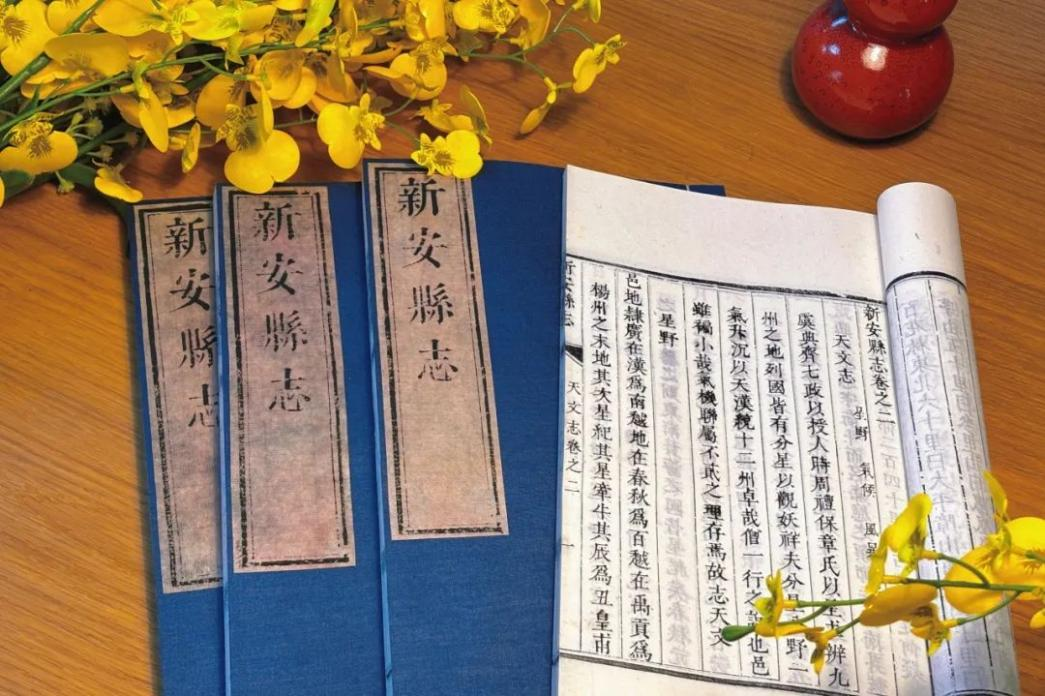 新安縣志
新安縣志
新安縣志
新安縣志卷之二
天文志
星野 氣候 風
虞典齊七政以授人時周禮保章氏以星土辨九
州之地列國皆有分星以觀妖祥夫分星野二
氣升沉以天漢統十二州卓哉僧一行之也邑
雖褊小哉氣機聯屬不貳之理存焉故志天文
星野
邑地隸廣在漢爲南越地在春秋爲百越在禹貢爲
楊州之末地其次星紀其星牽牛其辰爲丑皇甫
新安縣志
天文志卷之二
一